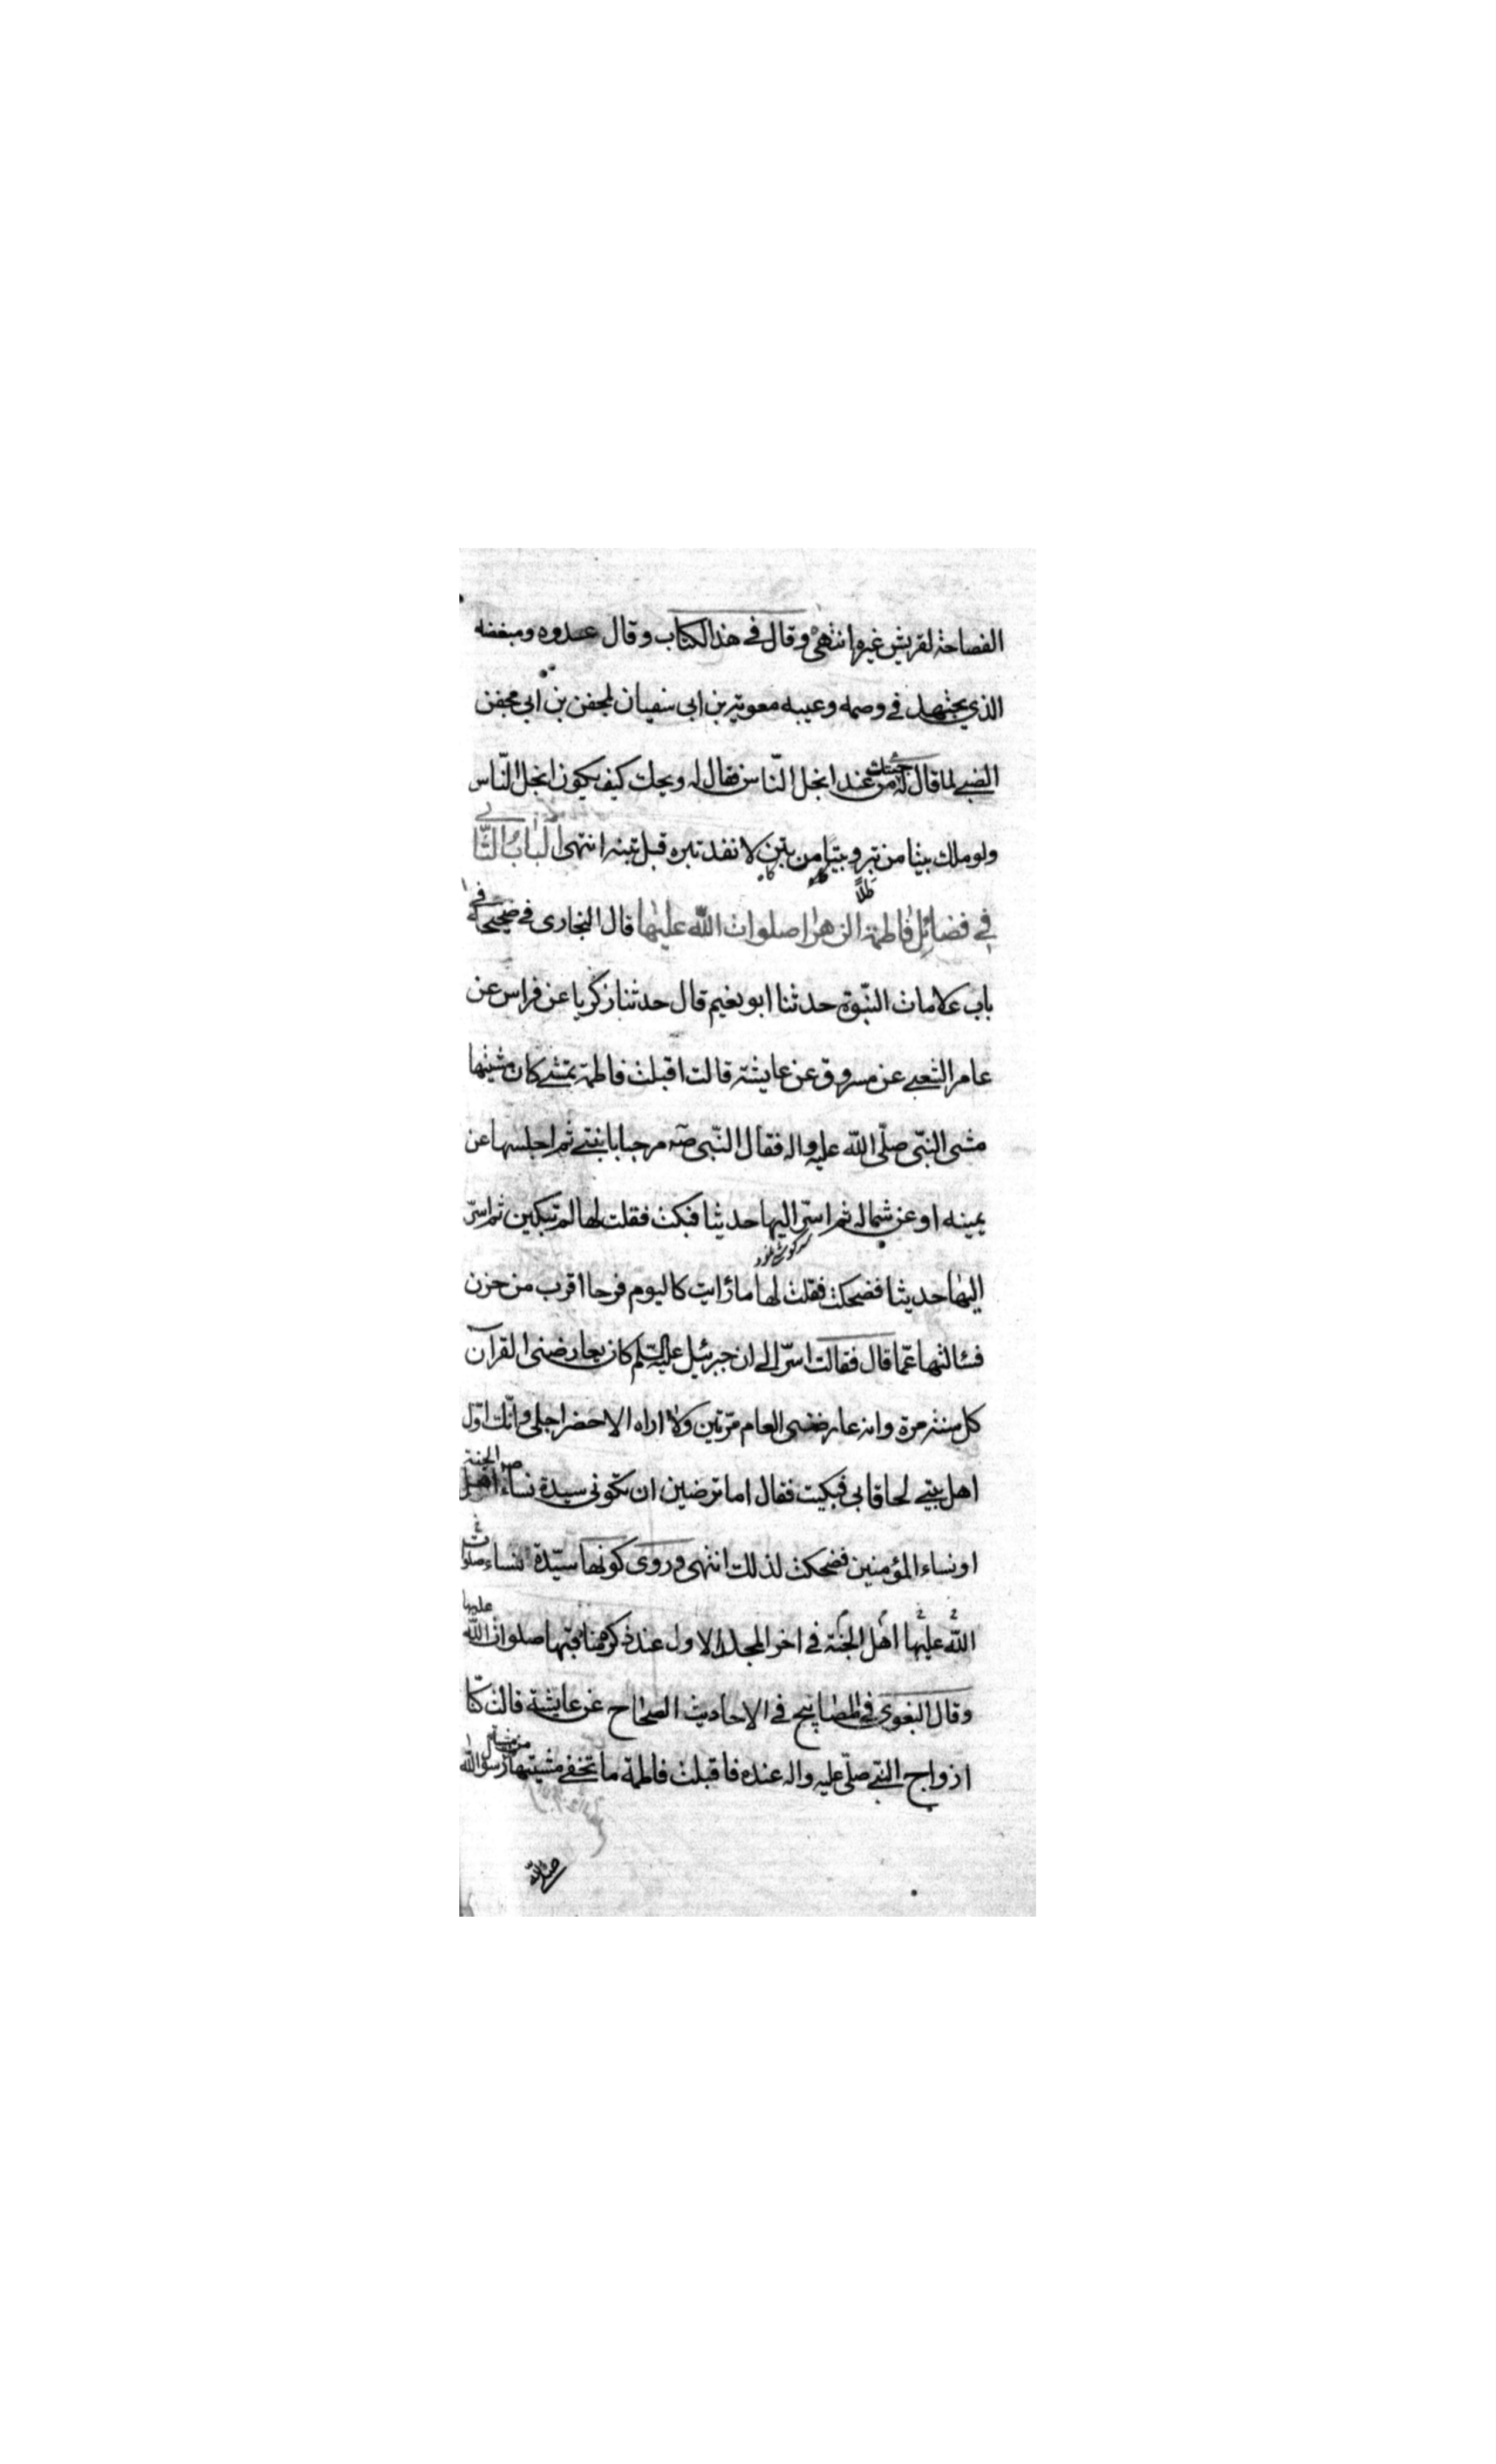 الفصاحة لقريش غيره انتهى وقال في هذا الكتاب وقال عدوه ومبغضه
الذي يجتهد في وصمه وعيبه معوية بن ابي سفيان لمحفن بن ابي محفن
الضبي لما قال له جئتك من عند ابخل الناس فقال له ويحك كيف يكون ابخل الناس
ولو ملك بيتا من تبر وبيتا من تبن لانفد تبره قبل تبنه انتهى الباب الثاني
طلا كاه
في فضائل فاطمة الزهرا صلوات الله عليها قال البخاري في صحيحه في
باب علامات النبوة حدثنا ابو نعيم قال حدثنا زكريا عن فراس عن
عامر الشعبي عن مسروق عن عايشة قالت اقبلت فاطمة تمشي كان مشيتها
مشى النبي صلى الله عليه واله فقال النبي صه مرحبا بابنتي ثم اجلسها عن
يمينه او عن شماله ثم اسر اليها حديثا فبكت فقلت لها لم تبكين ثم اسر
اليها حديثا فضحكت فقلت لها ما رايت كاليوم فرحا اقرب من حزن
فسالتها عما قال فقالت اسر الي ان جبرئيل عليه السلم كان يعارضنى القرآن
كل سنة مرة وانه عارضنى العام مرتين ولا اراه الا حضر اجلي وانك اول
اهل بيتي لحاقا بي فبكيت فقال اما ترضين ان تكوني سيدة نساء اهل الجنة
او نساء المؤمنين فضحكت لذلك انتهى وروى كونها سيدة نساء صلوات
الله عليها اهل الجنة في اخر المجلد الاول عند ذكر مناقبها صلوات الله عليها
وقال البغوي في المصابيح في الاحاديث الصحاح عن عايشة قالت كنا
ازواج النبي صلى عليه واله عنده فاقبلت فاطمة ما تخفي مشيتها من مشية رسول الله
صلى الله